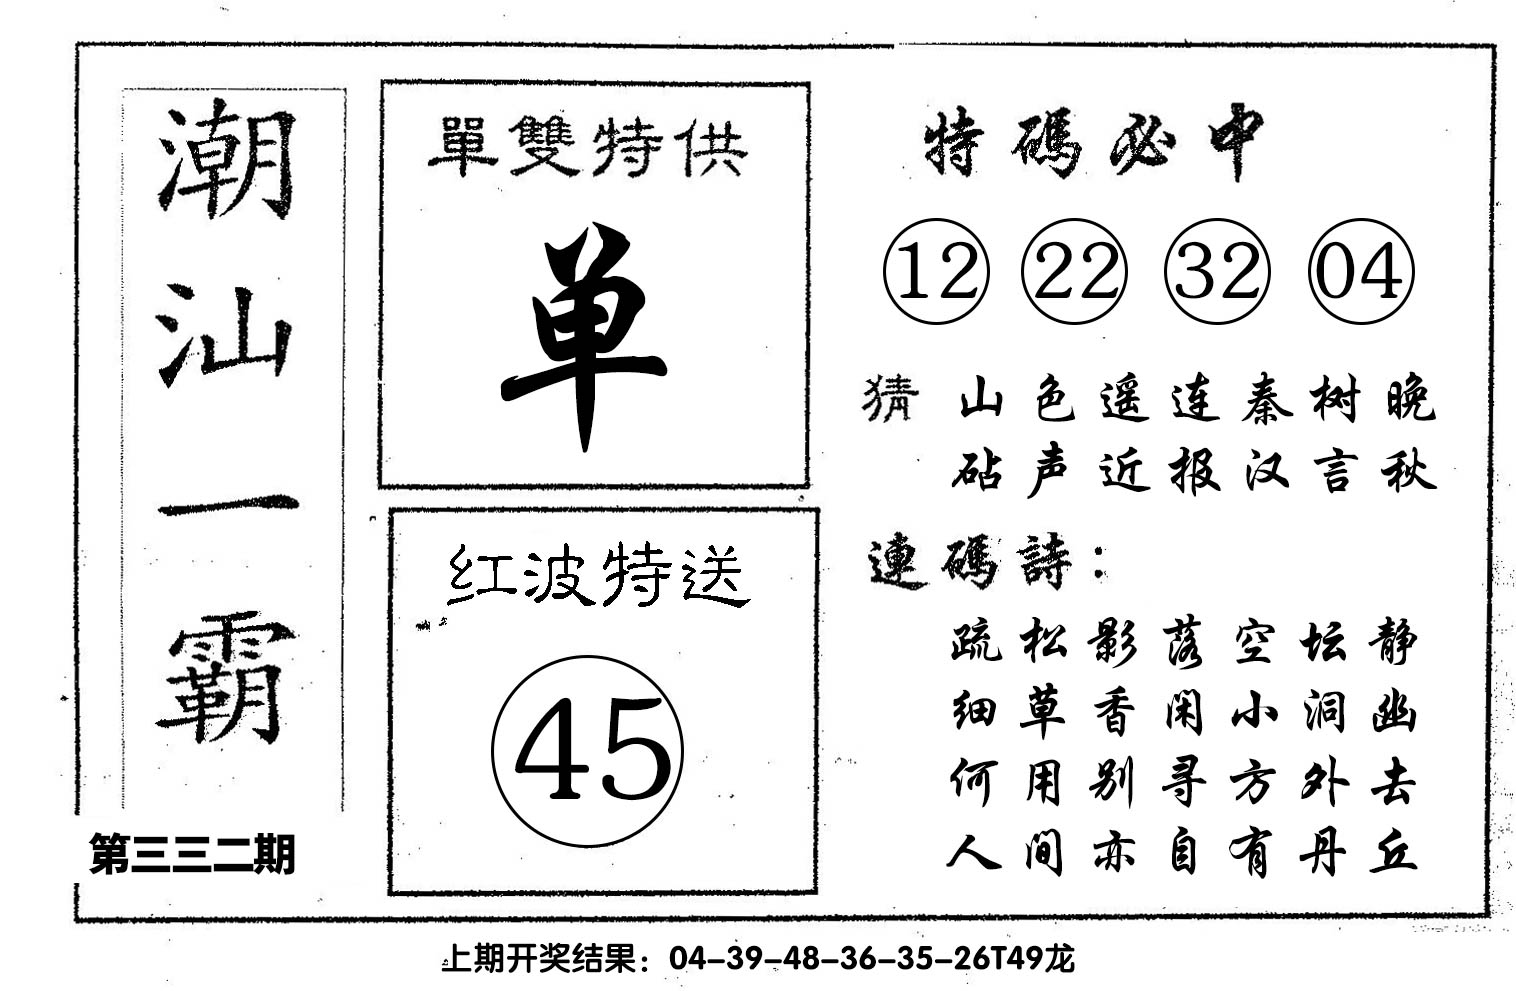 潮汕一霸
第三三二期
單雙特供
单
红波特送
45
特碼必中
12 22 32 04
猜 山色遥连秦树晚
砧声近报汉言秋
連碼詩：
疏松影落空坛静
细草香闲小洞幽
何用别寻方外去
人间亦自有丹丘
上期开奖结果：04-39-48-36-35-26T49龙